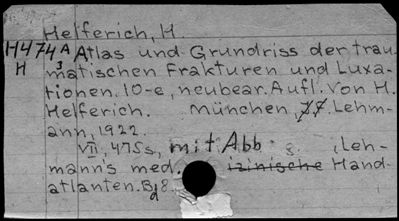 Helferich, H.
H474A Atlas und Grundriss der trau-
H 3 matischen Frakturen und Luxa-
tionen. 10-e, neubear. Aufl. von H.
Helferich. München, J.F. Lehm-
ann, 1922.
VII, 475s, mit Abb 8. (Leh-
manns med. izinische Hand-
atlanten. Bd 8.